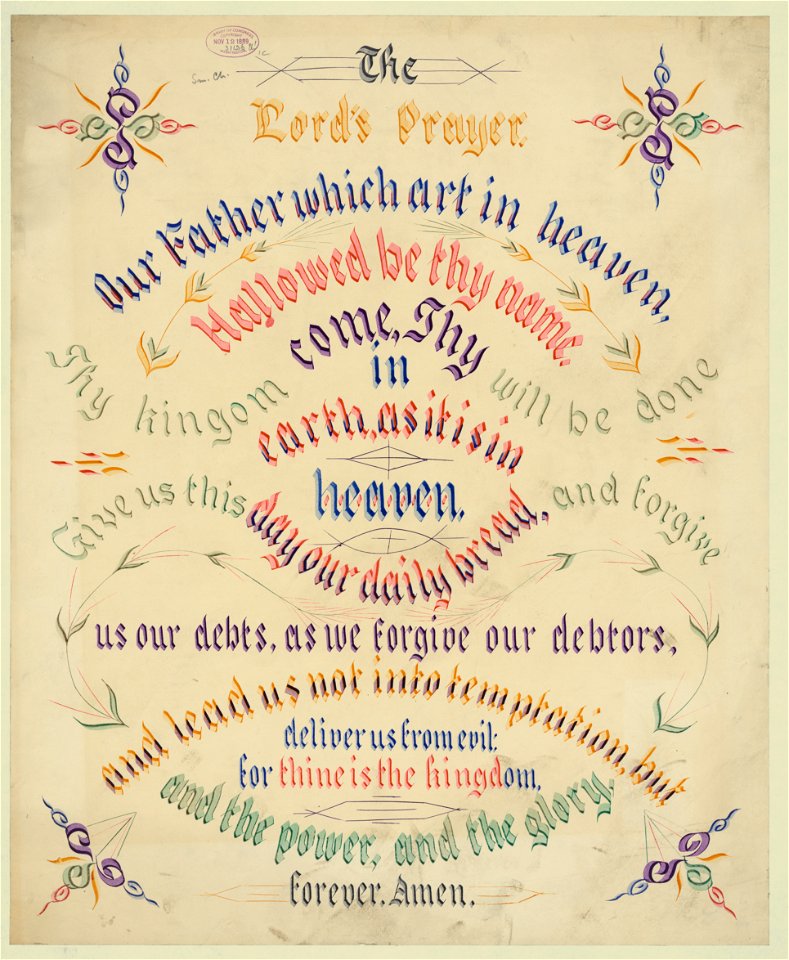 LIBRARY OF CONGRESS
COPYRIGHT
NOV 18 1889
WASHINGTON
Sm. Ch.
The
Lord's Prayer.
Our Father which art in heaven,
Hallowed be thy name.
Thy kingom come, Thy will be done
in
earth, as it is in
heaven.
Give us this day our daily bread, and forgive
us our debts, as we forgive our debtors,
and lead us not into temptation, but
deliver us from evil:
for thine is the kingdom,
and the power, and the glory,
forever. Amen.